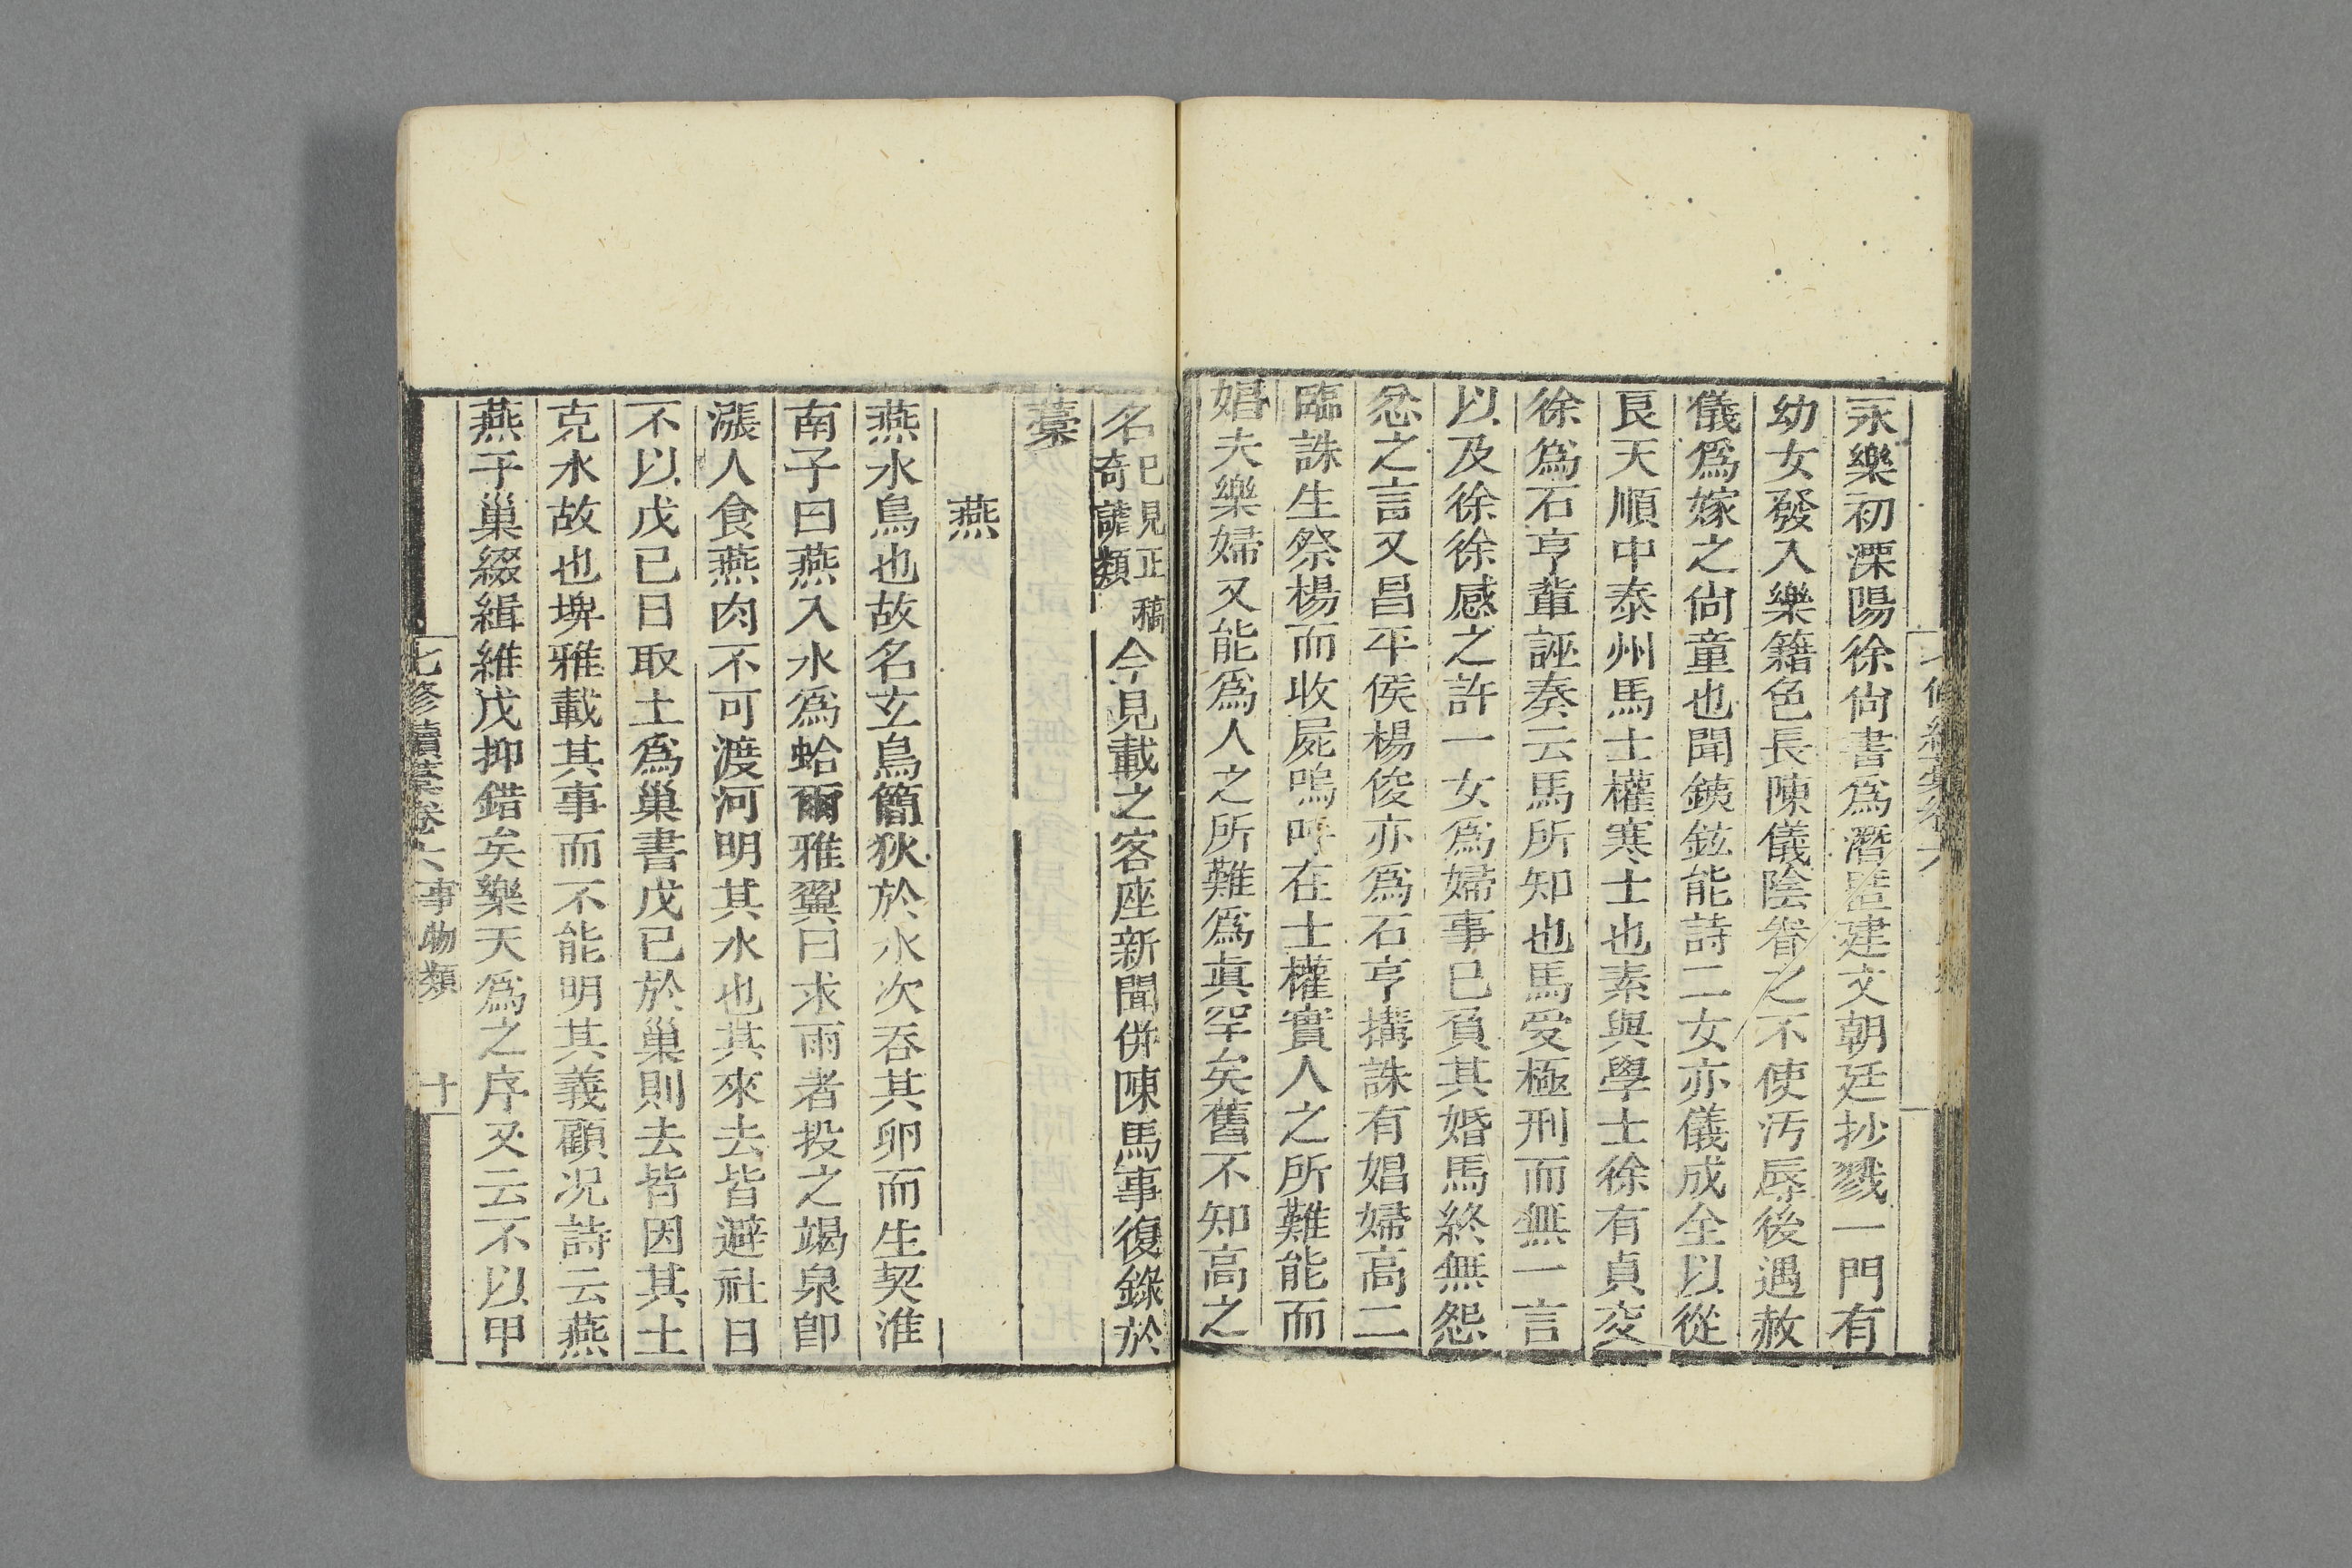 永樂初溧陽徐尙書爲潛匿建文朝廷抄戮一門有
幼女發入樂籍色長陳儀陰眷之不使汚辱後遇赦
儀爲嫁之尙童也聞銕鉉能詩二女亦儀成全以從
良天順中泰州馬士權寒士也素與學士徐有貞交
徐爲石亨輩誣奏云馬所知也馬受極刑而無一言
以及徐徐感之許一女爲婦事已負其婚馬終無怨
忿之言又昌平侯楊俊亦爲石亨搆誅有娼婦高二
臨誅生祭楊而收屍嗚呼在士權實人之所難能而
娼夫樂婦又能爲人之所難爲眞罕矣舊不知高之
名已見正稿奇謔類今見載之客座新聞併陳馬事復錄於
藁
燕
燕水鳥也故名玄鳥簡狄於水次吞其卵而生契淮
南子曰燕入水爲蛤爾雅翼曰求雨者投之竭泉卽
漲人食燕肉不可渡河明其水也其來去皆避社日
不以戊已日取土爲巢書戊已於巢則去皆因其土
克水故也埤雅載其事而不能明其義顧况詩云燕
燕于巢綴緝維戊抑錯矣樂天爲之序又云不以甲
七修續藁卷六事物類 十